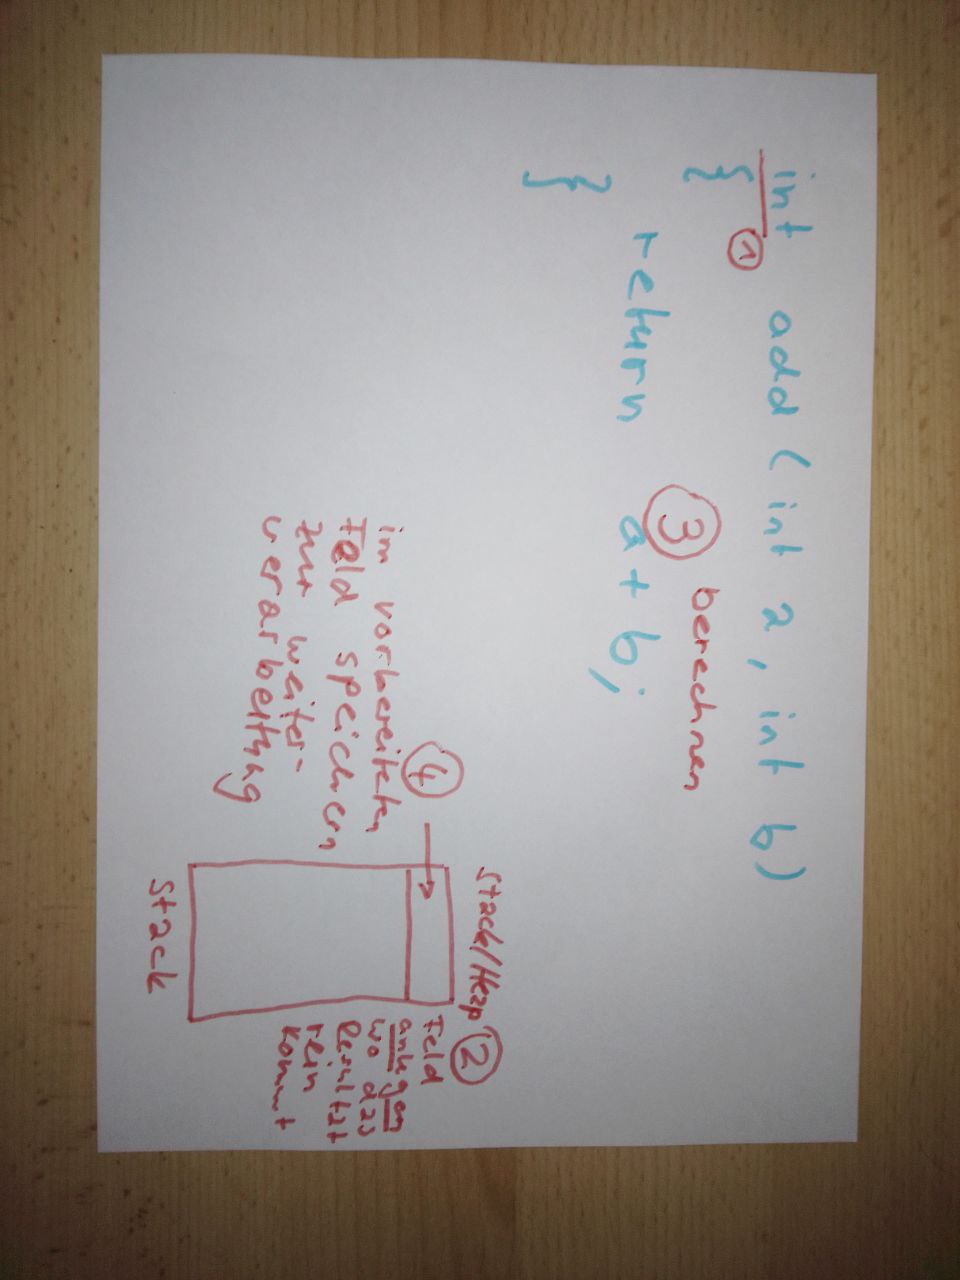 int add ( int a , int b )
①
{
③ berechnen
return a + b;
}
Stack/Heap ②
Feld
anlegen
wo das
Resultat
rein
kommt
④
im vorbereiteten
Feld speichern
zur weiter-
verarbeitung
Stack